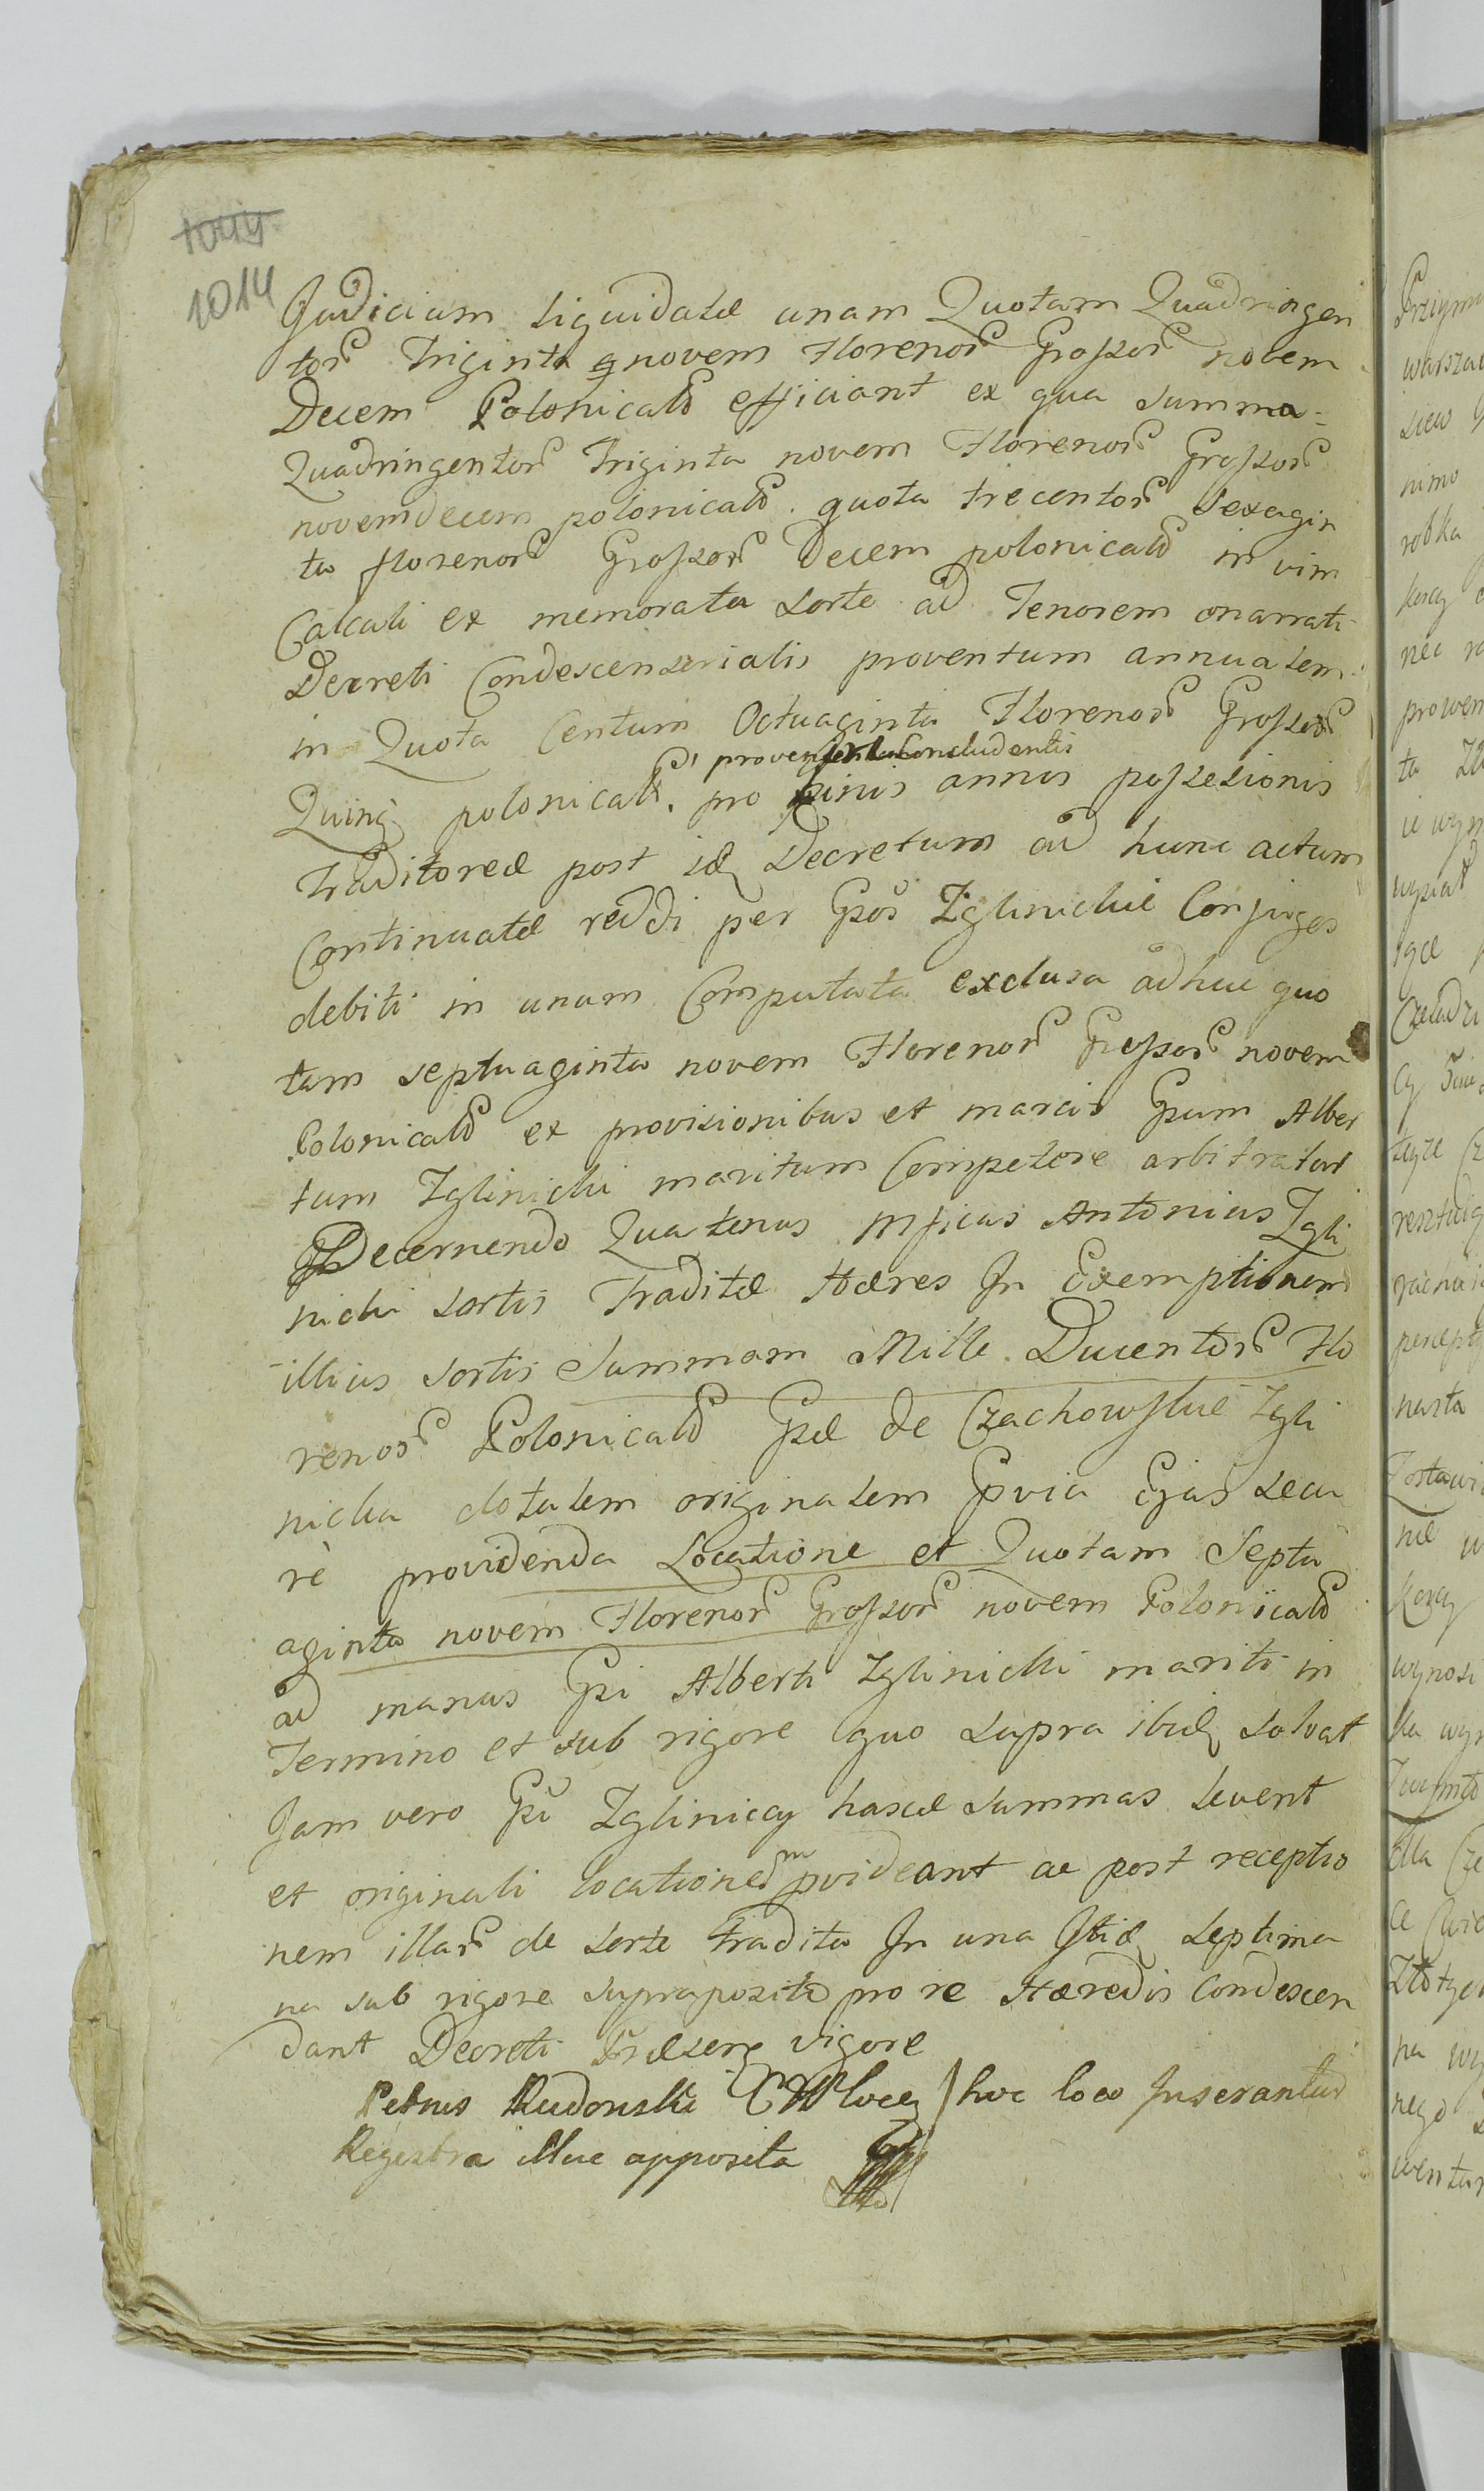 1044
1014
Judicium liquidatæ unam Quotam Quadringen
tor Triginta novem Florenor Grossor novem
Decem Polonicaliu efficiant ex qua summa
Quadringentor Triginta novem Florenor Grossor
novemdecem polonicaliu quota trecentor sexagin
ta florenor Grossor Decem polonicaliu in vim
Calculi ex memorata sorte ad Tenorem enarrati
Decreti Condescensorialis proventum annualem
in Quota Centum Octuaginta Florenor Grossor
Quinq polonicaliu concludentis
pro binis annis possesionis
Traditoreæ post id Decretum ad hunc actum
Continuatæ reddi per Gsos Zglinickie Conjuges
debiti in unum Computata exclusa adhuc quo
tam septuaginta novem Florenor Grossor novem
Polonicaliu ex provisionibus et marcis Gsum Alber
tum Zglinicki maritum Competere arbitratur
Decernendo Quatenus Mficus Antonius Zgli
nicki sortis Traditæ Hæres In Exemptionem
illius sortis Summam Mille Ducentor Flo
renor Polonicaliu Gsæ de Czachowskie Zgli
nicka dotalem originalem prvia Ejus secu
rè providenda Locatione et Quotam Septu
aginta novem Florenor Grossor novem Polonicaliu
ad manus Gsi Alberti Zglinicki mariti in
Termino et sub rigore quo supra ibid solvat
Jam vero Gsi Zgliniccy hasce summas levent
et originali locationem pvideant ac post receptio
nem illar de sorte tradita In una Itid septima
na sub rigore supraposito pro re Hæredis Condescen
dant Decreti Præsens vigore
Petrus Rudowski hoc loco Inserantur
Regestra illuc apposita